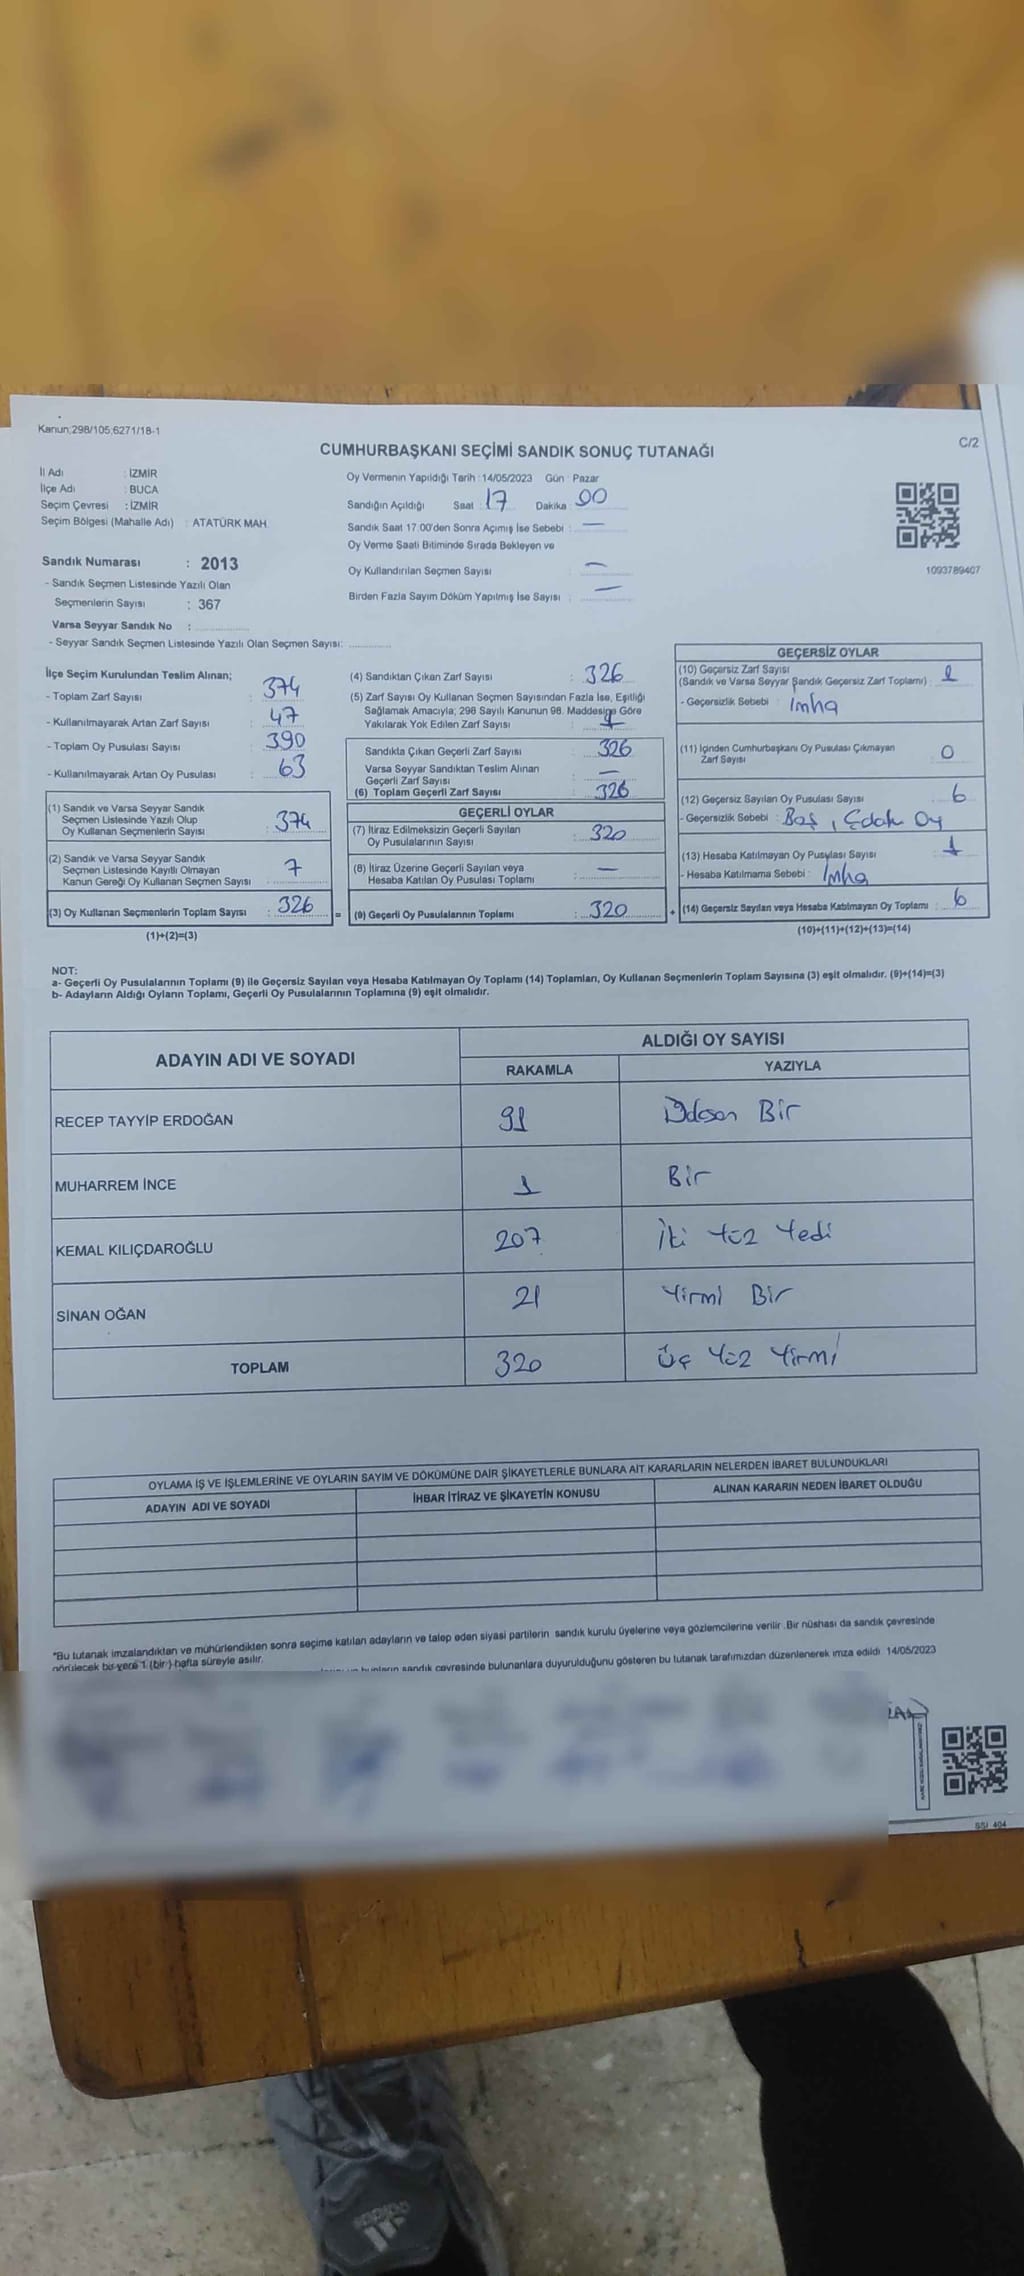 Kanun;298/105;6271/18-1
CUMHURBAŞKANI SEÇİMİ SANDIK SONUÇ TUTANAĞI
C/2
İl Adı : İZMİR
İlçe Adı : BUCA
Seçim Çevresi : İZMİR
Seçim Bölgesi (Mahalle Adı) : ATATÜRK MAH.
Oy Vermenin Yapıldığı Tarih : 14/05/2023 Gün : Pazar
Sandığın Açıldığı Saat : 17 Dakika : 00
Sandık Saat 17:00'den Sonra Açılmış İse Sebebi : —
Oy Verme Saati Bitiminde Sırada Bekleyen ve
Oy Kullandırılan Seçmen Sayısı : —
Birden Fazla Sayım Döküm Yapılmış İse Sayısı : —
1093789407
Sandık Numarası : 2013
- Sandık Seçmen Listesinde Yazılı Olan
Seçmenlerin Sayısı : 367
Varsa Seyyar Sandık No :
- Seyyar Sandık Seçmen Listesinde Yazılı Olan Seçmen Sayısı:
İlçe Seçim Kurulundan Teslim Alınan;
- Toplam Zarf Sayısı : 374
- Kullanılmayarak Artan Zarf Sayısı : 47
- Toplam Oy Pusulası Sayısı : 390
- Kullanılmayarak Artan Oy Pusulası : 63
(1) Sandık ve Varsa Seyyar Sandık
Seçmen Listesinde Yazılı Olup
Oy Kullanan Seçmenlerin Sayısı : 374
(2) Sandık ve Varsa Seyyar Sandık
Seçmen Listesinde Kayıtlı Olmayan
Kanun Gereği Oy Kullanan Seçmen Sayısı : 7
(3) Oy Kullanan Seçmenlerin Toplam Sayısı : 326
(1)+(2)=(3)
(4) Sandıktan Çıkan Zarf Sayısı : 326
(5) Zarf Sayısı Oy Kullanan Seçmen Sayısından Fazla İse, Eşitliği
Sağlamak Amacıyla; 298 Sayılı Kanunun 98. Maddesine Göre
Yakılarak Yok Edilen Zarf Sayısı : 1
Sandıkta Çıkan Geçerli Zarf Sayısı : 326
Varsa Seyyar Sandıktan Teslim Alınan
Geçerli Zarf Sayısı : —
(6) Toplam Geçerli Zarf Sayısı : 326
GEÇERLİ OYLAR
(7) İtiraz Edilmeksizin Geçerli Sayılan
Oy Pusulalarının Sayısı : 320
(8) İtiraz Üzerine Geçerli Sayılan veya
Hesaba Katılan Oy Pusulası Toplamı : —
= (9) Geçerli Oy Pusulalarının Toplamı : 320
GEÇERSİZ OYLAR
(10) Geçersiz Zarf Sayısı
(Sandık ve Varsa Seyyar Sandık Geçersiz Zarf Toplamı) :
- Geçersizlik Sebebi : İmha
(11) İçinden Cumhurbaşkanı Oy Pusulası Çıkmayan
Zarf Sayısı : 0
(12) Geçersiz Sayılan Oy Pusulası Sayısı : 6
- Geçersizlik Sebebi : Boş, Oy
(13) Hesaba Katılmayan Oy Pusulası Sayısı : 1
- Hesaba Katılmama Sebebi : İmha
+ (14) Geçersiz Sayılan veya Hesaba Katılmayan Oy Toplamı : 6
(10)+(11)+(12)+(13)=(14)
NOT:
a- Geçerli Oy Pusulalarının Toplamı (9) ile Geçersiz Sayılan veya Hesaba Katılmayan Oy Toplamı (14) Toplamları, Oy Kullanan Seçmenlerin Toplam Sayısına (3) eşit olmalıdır. (9)+(14)=(3)
b- Adayların Aldığı Oyların Toplamı, Geçerli Oy Pusulalarının Toplamına (9) eşit olmalıdır.
ADAYIN ADI VE SOYADI ALDIĞI OY SAYISI
RAKAMLA YAZIYLA
RECEP TAYYİP ERDOĞAN 91 Bir
MUHARREM İNCE 1 Bir
KEMAL KILIÇDAROĞLU 207 İki Yüz Yedi
SİNAN OĞAN 21 Yirmi Bir
TOPLAM 320 Üç Yüz Yirmi
OYLAMA İŞ VE İŞLEMLERİNE VE OYLARIN SAYIM VE DÖKÜMÜNE DAİR ŞİKAYETLERLE BUNLARA AİT KARARLARIN NELERDEN İBARET BULUNDUKLARI
ADAYIN ADI VE SOYADI İHBAR İTİRAZ VE ŞİKAYETİN KONUSU ALINAN KARARIN NEDEN İBARET OLDUĞU
*Bu tutanak imzalandıktan ve mühürlendikten sonra seçime katılan adayların ve talep eden siyasi partilerin sandık kurulu üyelerine veya gözlemcilerine verilir. Bir nüshası da sandık çevresinde
görülecek bir yere 1 (bir) hafta süreyle asılır.
sandık çevresinde bulunanlara duyurulduğunu gösteren bu tutanak tarafımızdan düzenlenerek imza edildi. 14/05/2023
SSI 404
adidas